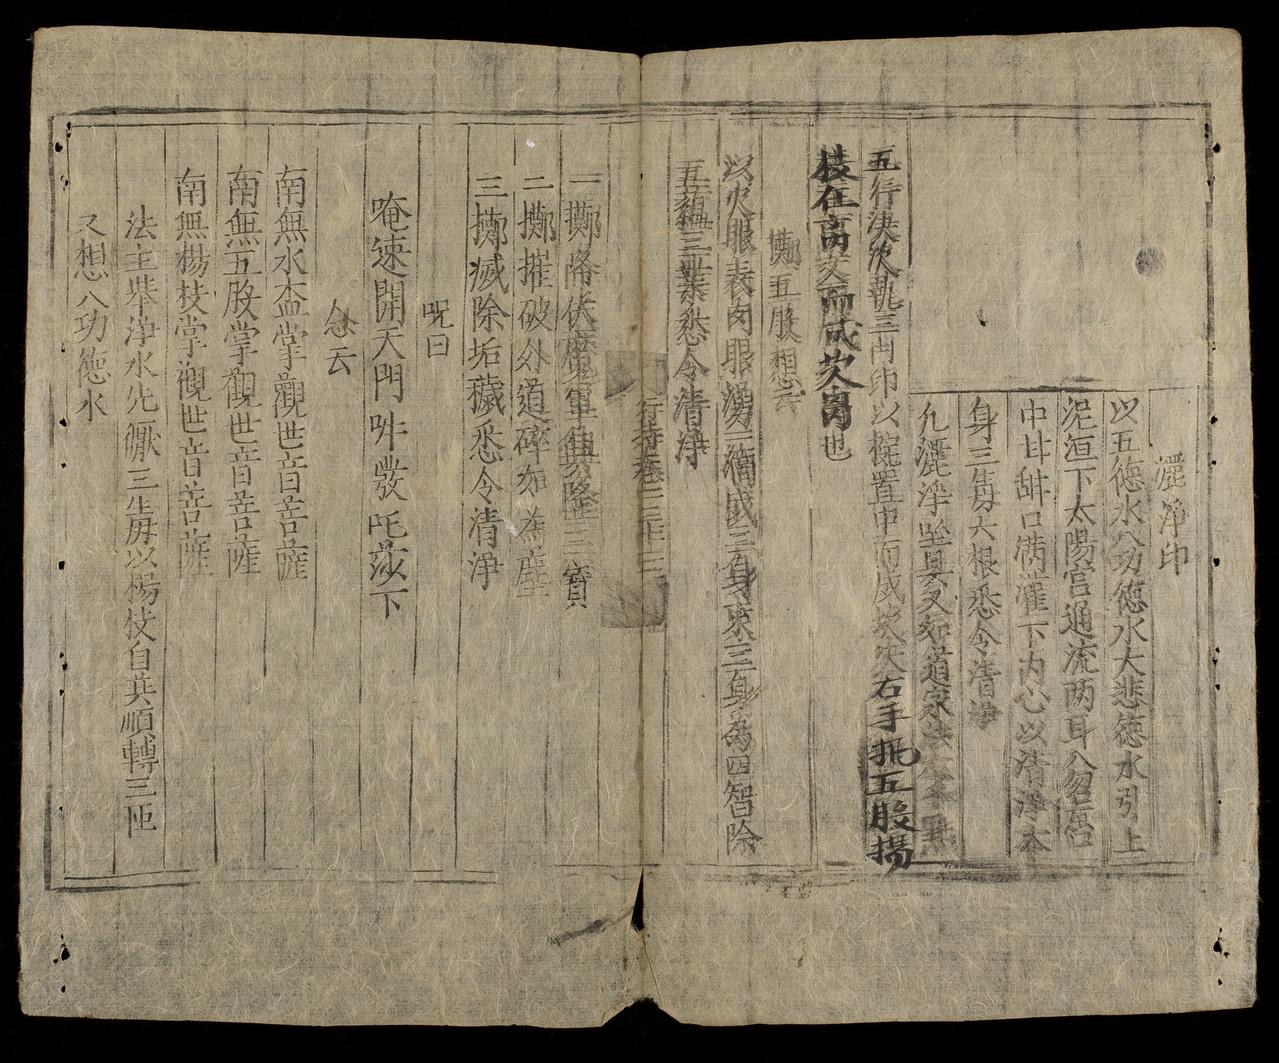 灑淨印
以五德水八功德水大悲德水引上
泥洹下太陽宮通流两耳入忽宮
中甘甜口满灌下内心以清淨本
身三房六根悉令清淨
凡灑淨坐具又如道家法
五行決次執三印以椀置中而成坎次右手執五股揚
枝在离次而成坎离也
擲五股想云
以火眼表肉眼湧三獨成三身束三身為四智除
五蘊三業悉令清淨
行持卷二
一擲降伏魔軍興隆三寳
二擲摧破外道碎如為塵
三擲滅除垢穢悉令清淨
呪曰
唵速開天門吽發吒莎下
念云
南無水盃掌觀世音菩薩
南無五股掌觀世音菩薩
南無楊枝掌觀世音菩薩
法主举淨水先獻三房以楊枝自共順轉三匝
又想八功德水